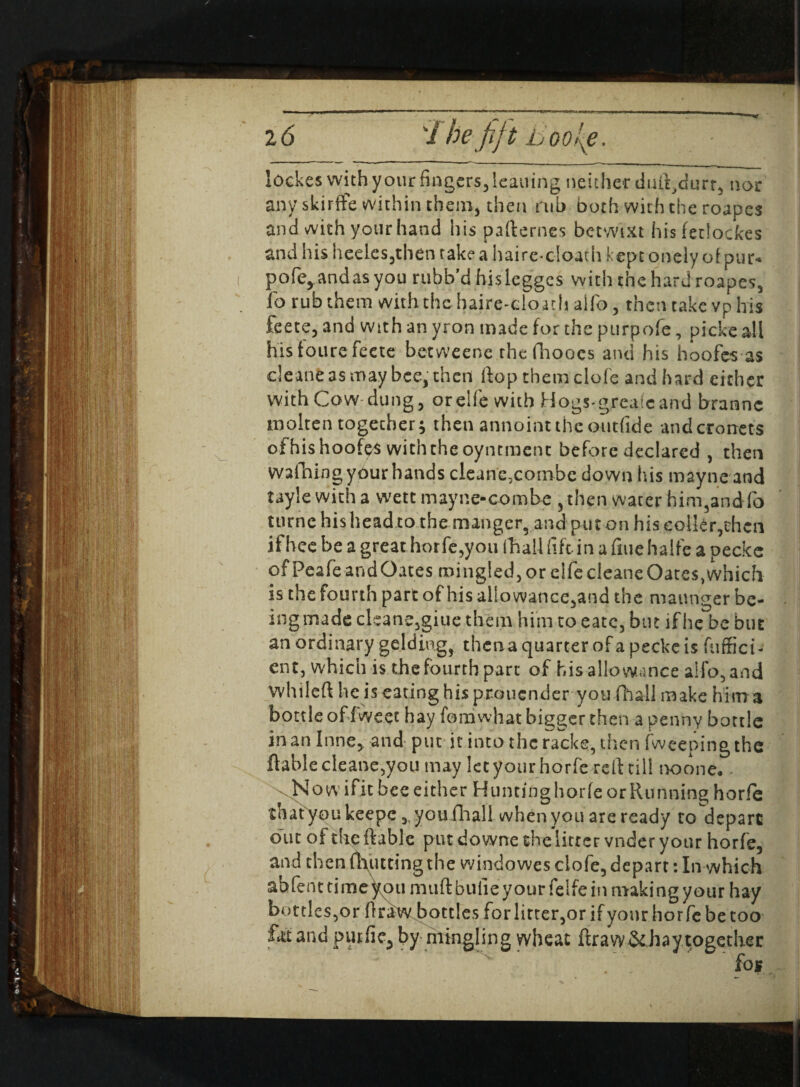 26 The fift Booke.
lockes with your fingers, leauing neither dust, durt, nor
any skirffe within them, then rub both with the roapes
and with your hand his pasternes betwixt his fetlockes
and his heeles, then take a haire-cloath kept onely of pur-
pose, and as you rubb'd his legges with the hard roapes,
so rub them with the haire-cloath also, then take vp his
feete, and with an yron made for the purpose, picke all
his foure feete betweene the shooes and his hoofes as
cleane as may bee, then stop them close and hard either
with Cow-dung, or else with Hogs-grease and branne
molten together; then annoint the outside and cronets
of his hoofes with the oyntment before declared, then
washing your hands cleane, combe down his mayne and
tayle with a wett mayne-combe, then water him, and so
turne his head to the manger, and put on his coller, then
if hee be a great horse, you shall sift in a siue halfe a pecke
of Pease and Oates mingled, or else cleane Oates, which
is the fourth part of his allowance, and the maunger be-
ing made cleane, giue them him to eate, but if he be but
an ordinary gelding, then a quarter of a pecke is suffici-
ent, which is the fourth part of his allowance also, and
whilest he is eating his prouender you shall make him a
bottle of sweet hay somwhat bigger then a penny bottle
in an Inne, and put it into the racke, then sweeping the
stable cleane, you may let your horse rest till noone.
Now if it bee either Hunting horse or Running horse
that you keepe, you shall when you are ready to depart
out of the stable put downe the litter vnder your horse,
and then shutting the windowes close, depart: In which
absent time you must busie your selfe in making your hay
bottles, or straw bottles for litter, or if your horse be too
fat and pursie, by mingling wheat straw & hay together
for